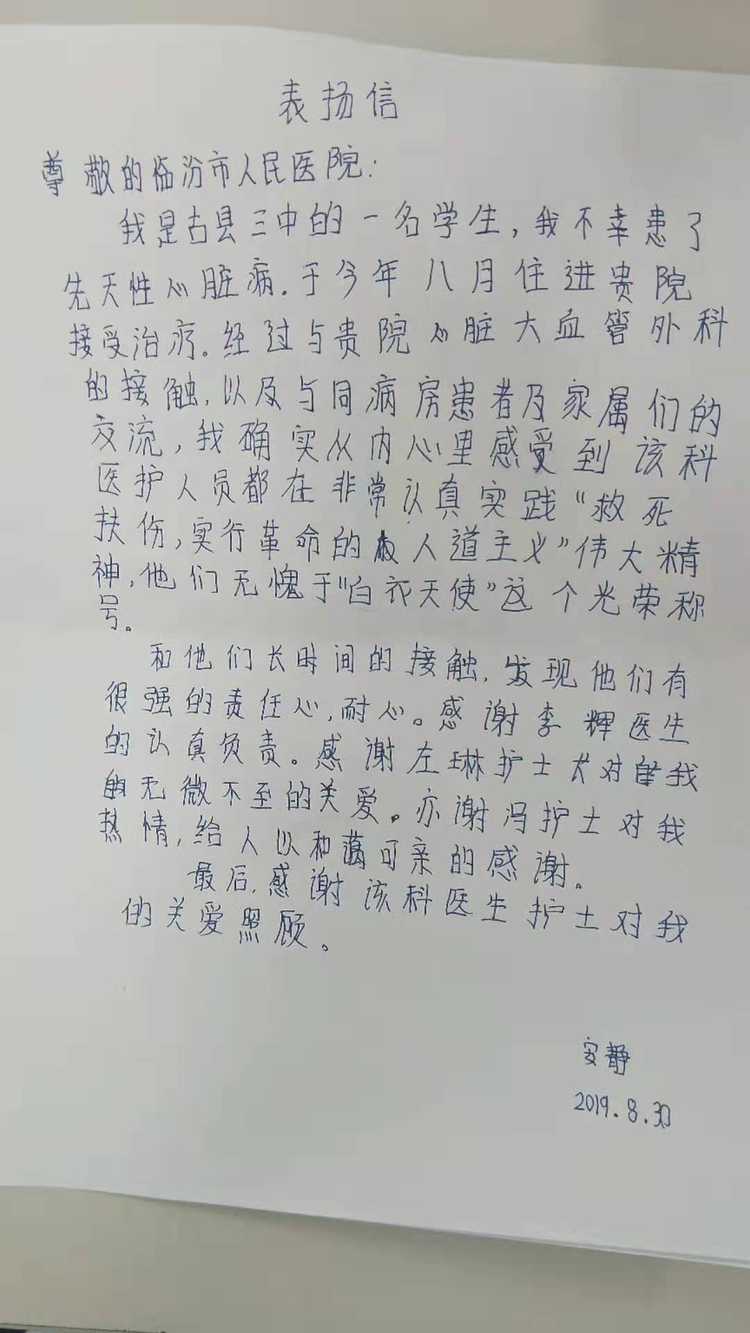 表扬信
尊敬的临汾市人民医院:
我是古县三中的一名学生,我不幸患了
先天性心脏病.于今年八月住进贵院
接受治疗.经过与贵院心脏大血管外科
的接触,以及与同病房患者及家属们的
交流,我确实从内心里感受到该科
医护人员都在非常认真实践“救死
扶伤,实行革命的人道主义”伟大精
神,他们无愧于“白衣天使”这个光荣称
号。
和他们长时间的接触,发现他们有
很强的责任心,耐心。感谢李辉医生
的认真负责。感谢左琳护士长对我
的无微不至的关爱。亦谢冯护士对我
热情,给人以和蔼可亲的感谢。
最后,感谢该科医生护士对我
的关爱照顾。
安静
2019.8.30